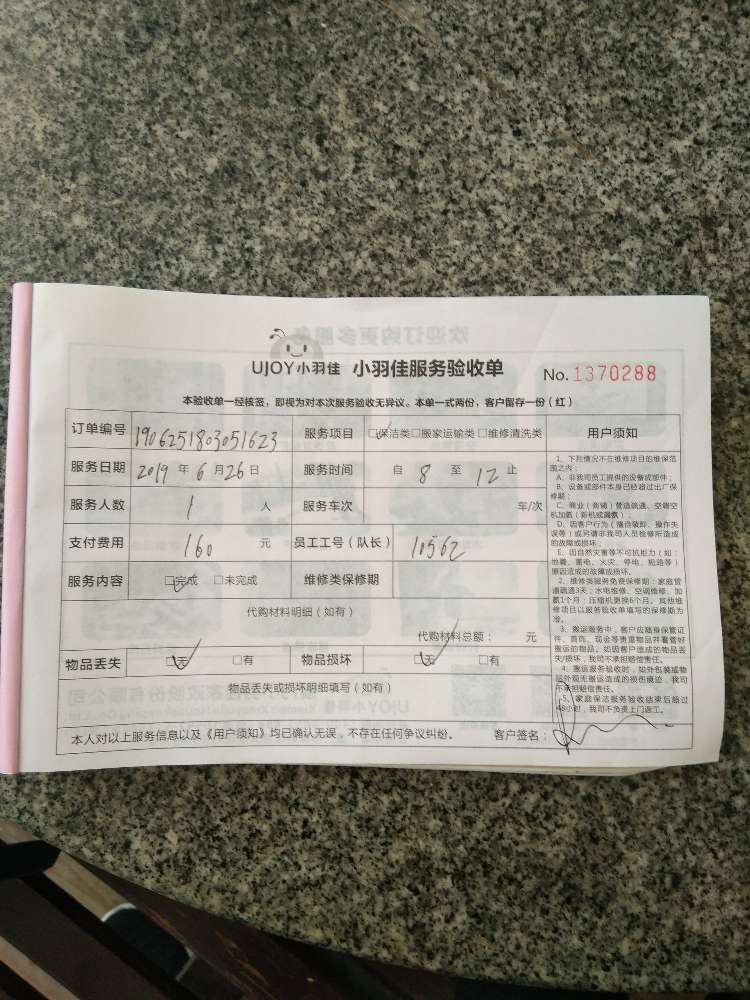 UJOY小羽佳 小羽佳服务验收单 No.1370288
本验收单一经核签，即视为对本次服务验收无异议。本单一式两份，客户留存一份（红）
订单编号 1906251803051623 服务项目 ☑保洁类□搬家运输类□维修清洗类
服务日期 2019 年 6 月 26 日 服务时间 自 8 至 12 止
服务人数 1 人 服务车次 车/次
支付费用 160 元 员工工号（队长） 10562
服务内容 ☑完成 □未完成 维修类保修期
代购材料明细（如有）
代购材料总额： 元
物品丢失 ☑无 □有 物品损坏 ☑无 □有
物品丢失或损坏明细填写（如有）
用户须知
1、下列情况不在维修项目的维保范
围之内：
A、非我司员工提供的设备或部件；
B、设备或部件本身已经超过出厂保
修期；
C、商业（商铺）管道疏通、空调空
机加氟（新机或漏氟）；
D、因客户行为（擅自装卸、操作失
误等）或另请非我司人员检修所造成
的故障或损坏；
E、因自然灾害等不可抗拒力（如：
地震、雷电、火灾、停电、短路等）
原因造成的故障或损坏。
2、维修类服务免费保修期：家庭管
道疏通3天；水电维修、空调维修、加
氟1个月；压缩机更换6个月。其他维
修项目以服务验收单填写的保修期为
准。
3、搬运服务中，客户应随身保管证
件、首饰、现金等贵重物品并看管好
搬运的物品。如因客户造成的物品丢
失/损坏，我司不承担赔偿责任。
4、搬运服务验收时，如外包装或物
品外观无搬运造成的损伤痕迹，我司
不承担赔偿责任。
5、家庭保洁服务验收结束后超过
48小时，我司不负责上门返工。
本人对以上服务信息以及《用户须知》均已确认无误，不存在任何争议纠纷。 客户签名：